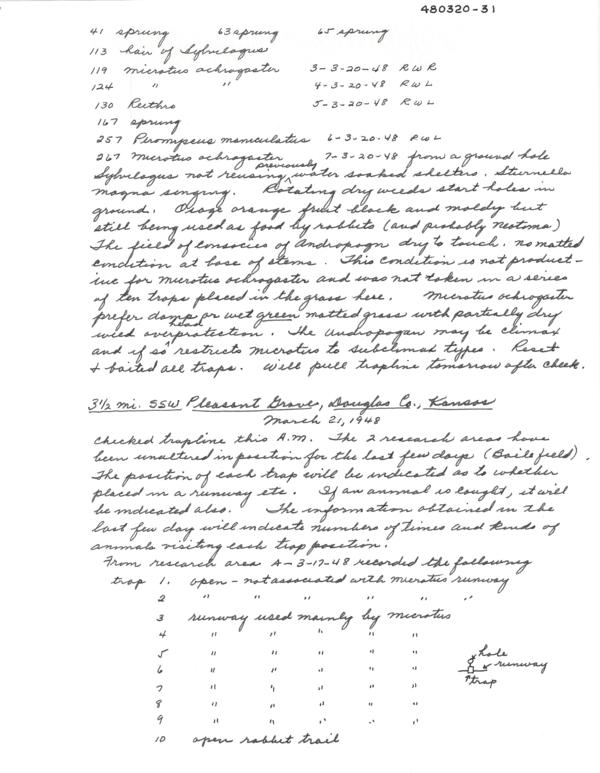 480320-31
41 sprung 63 sprung 65 sprung
113 hair of Sylvilagus
119 microtus ochrogaster 3-3-20-48 R W R
124 " " 4-3-20-48 R W L
130 Reithro 5-3-20-48 R W L
167 sprung
257 Peromyscus maniculatus 6-3-20-48 R W L
267 Microtus ochrogaster 7-3-20-48 from a ground hole
Sylvilagus not reusing previously water soaked shelters. Sturnella
magna singing. Rotating dry weeds start holes in
ground. Osage orange fruit black and moldy but
still being used as food by rabbits (and probably Neotoma)
The field of consocies of Andropogn dry to touch. no matted
condition at base of stems. This condition is not product-
ive for Microtus ochrogaster and was not taken in a series
of ten traps placed in the grass here. Microtus ochrogaster
prefer damp or wet green matted grass with partially dry
weed overhead protection. The Andropogan may be climax
and if so restricts Microtus to subclimax types. Reset
+ baited all traps. Will pull trapline tomorrow after check.
3 1/2 mi. SSW Pleasant Grove, Douglas Co., Kansas
March 21, 1948
Checked trapline this A.M. The 2 research areas have
been unaltered in position for the last few days (Baile field).
The position of each trap will be indicated as to whether
placed in a runway etc. If an animal is caught, it will
be indicated also. The information obtained in the
last few day will indicate numbers of times and kinds of
animals visiting each trap position.
From research area A-3-17-48 recorded the following
trap 1. open - not associated with microtus runway
2 " " " " " "
3 runway used mainly by microtus
4 " " " " "
5 " " " " "
6 " " " " "
7 " " " " "
8 " " " " "
9 " " " " "
10 open rabbit trail
hole
runway
trap